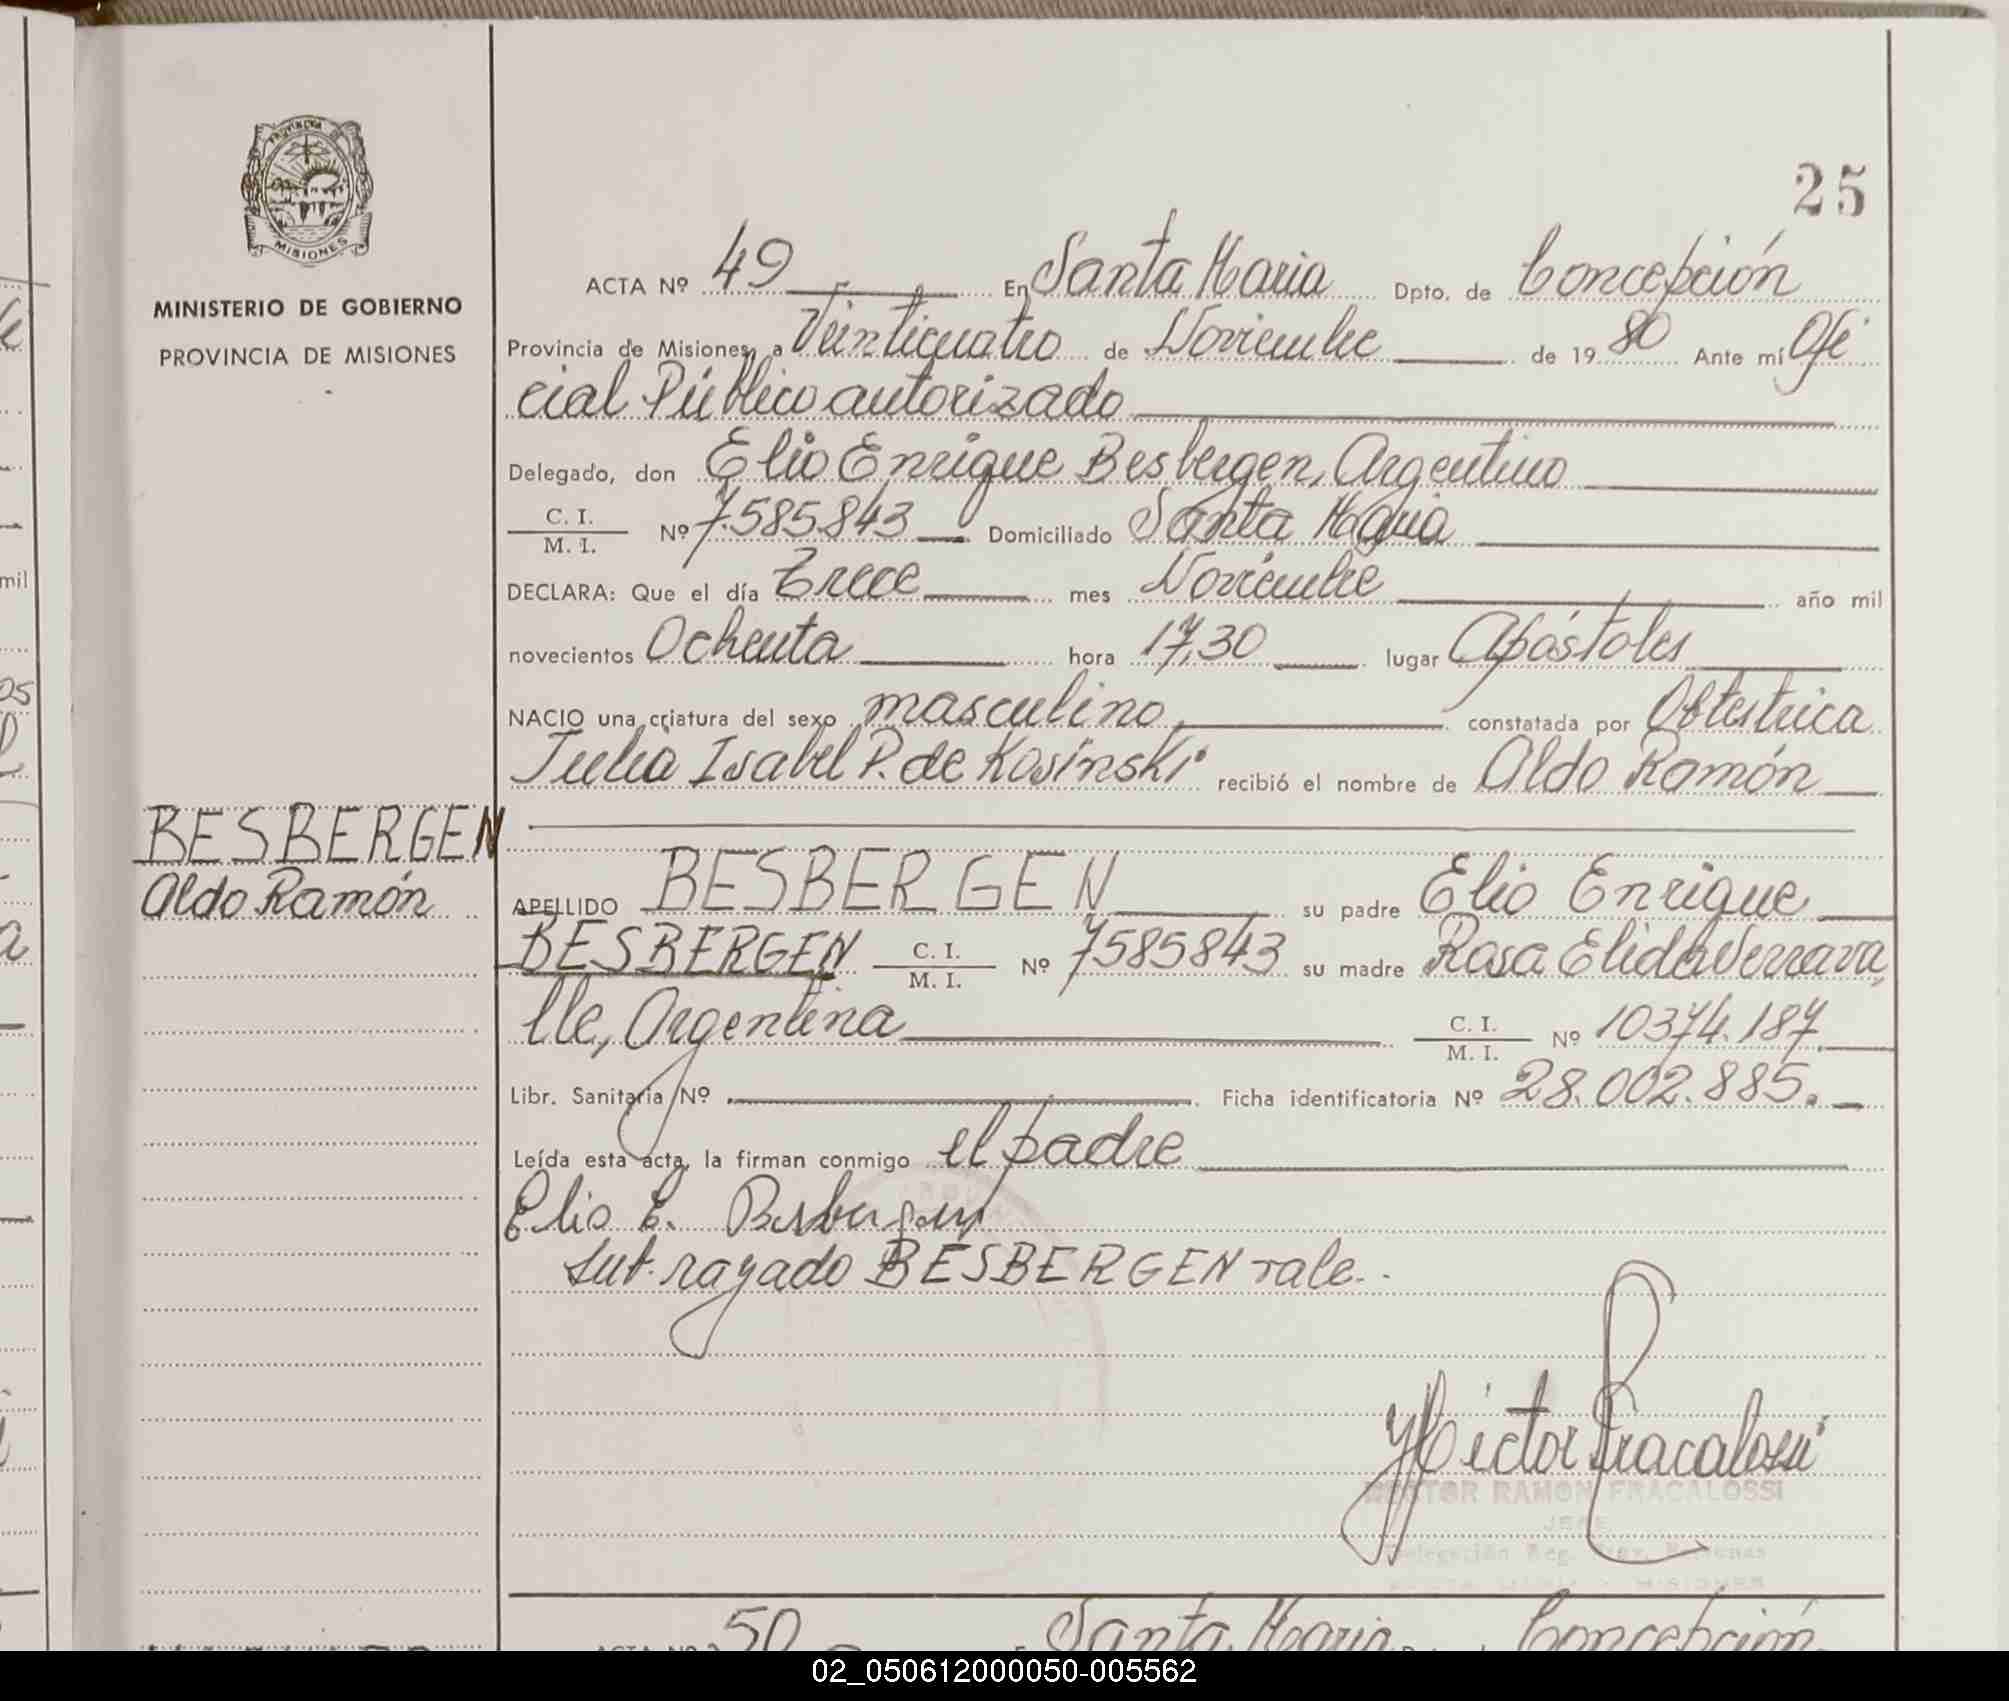 PROVINCIA DE
MISIONES
MINISTERIO DE GOBIERNO
PROVINCIA DE MISIONES
BESBERGEN
Aldo Ramón
25
ACTA Nº 49 En Santa Maria Dpto. de Concepción
Provincia de Misiones, a Veinticuatro de Noviembre de 19 80 Ante mí Ofi
cial Público autorizado
Delegado, don Elio Enrique Besbergen, Argentino
C. I.
M. I. Nº 7.585.843 Domiciliado Santa Maria
DECLARA: Que el día Trece mes Noviembre año mil
novecientos Ochenta hora 17,30 lugar Apóstoles
NACIO una criatura del sexo masculino, constatada por Obtestrica
Julia Isabel P. de Kosinski recibió el nombre de Aldo Ramón
APELLIDO BESBERGEN su padre Elio Enrique
BESBERGEN C. I. M. I. Nº 7585843 su madre Rosa Elida Verrava
lle, Argentina C. I. M. I. Nº 10374.187.
Libr. Sanitaria Nº Ficha identificatoria Nº 28.002.885.
Leída esta acta, la firman conmigo el padre
Elio E. Besbergen
Sub-rayado BESBERGEN vale.
Héctor Fracalossi
HECTOR RAMON FRACALOSSI
JEFE
Delegación Reg. Prov. Personas
ACTA Nº 50 En Santa Maria Dpto. de Concepción
02_050612000050-005562